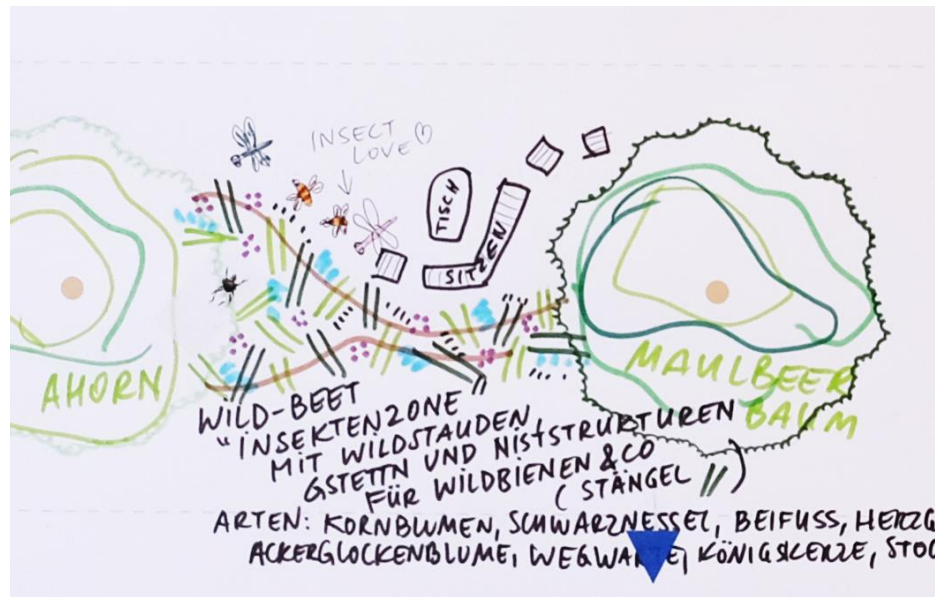 INSECT
LOVE ♡
TISCH
SITZEN
AHORN
MAULBEER
BAUM
WILD-BEET
"INSEKTENZONE
MIT WILDSTAUDEN,
GSTETTN UND NISTSTRUKTUREN
FÜR WILDBIENEN & CO
(STÄNGEL //)
ARTEN: KORNBLUMEN, SCHWARZNESSEL, BEIFUSS, HERZG
ACKERGLOCKENBLUME, WEGWARTE, KÖNIGSKERZE, STOC